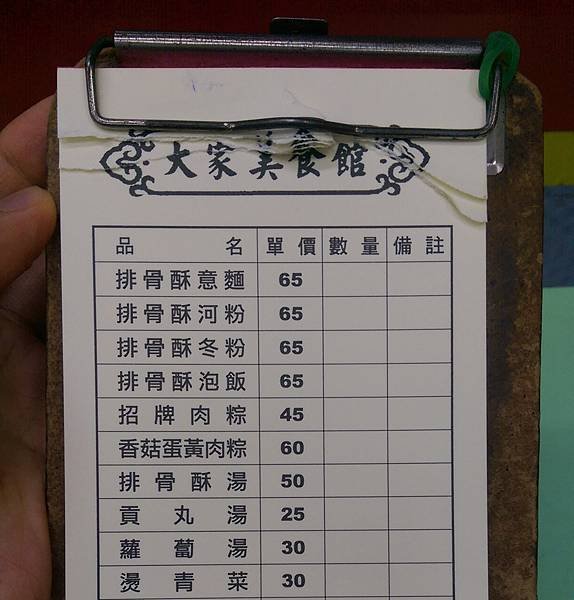 大家美食館
品名 單價 數量 備註
排骨酥意麵 65
排骨酥河粉 65
排骨酥冬粉 65
排骨酥泡飯 65
招牌肉粽 45
香菇蛋黃肉粽 60
排骨酥湯 50
貢丸湯 25
蘿蔔湯 30
燙青菜 30